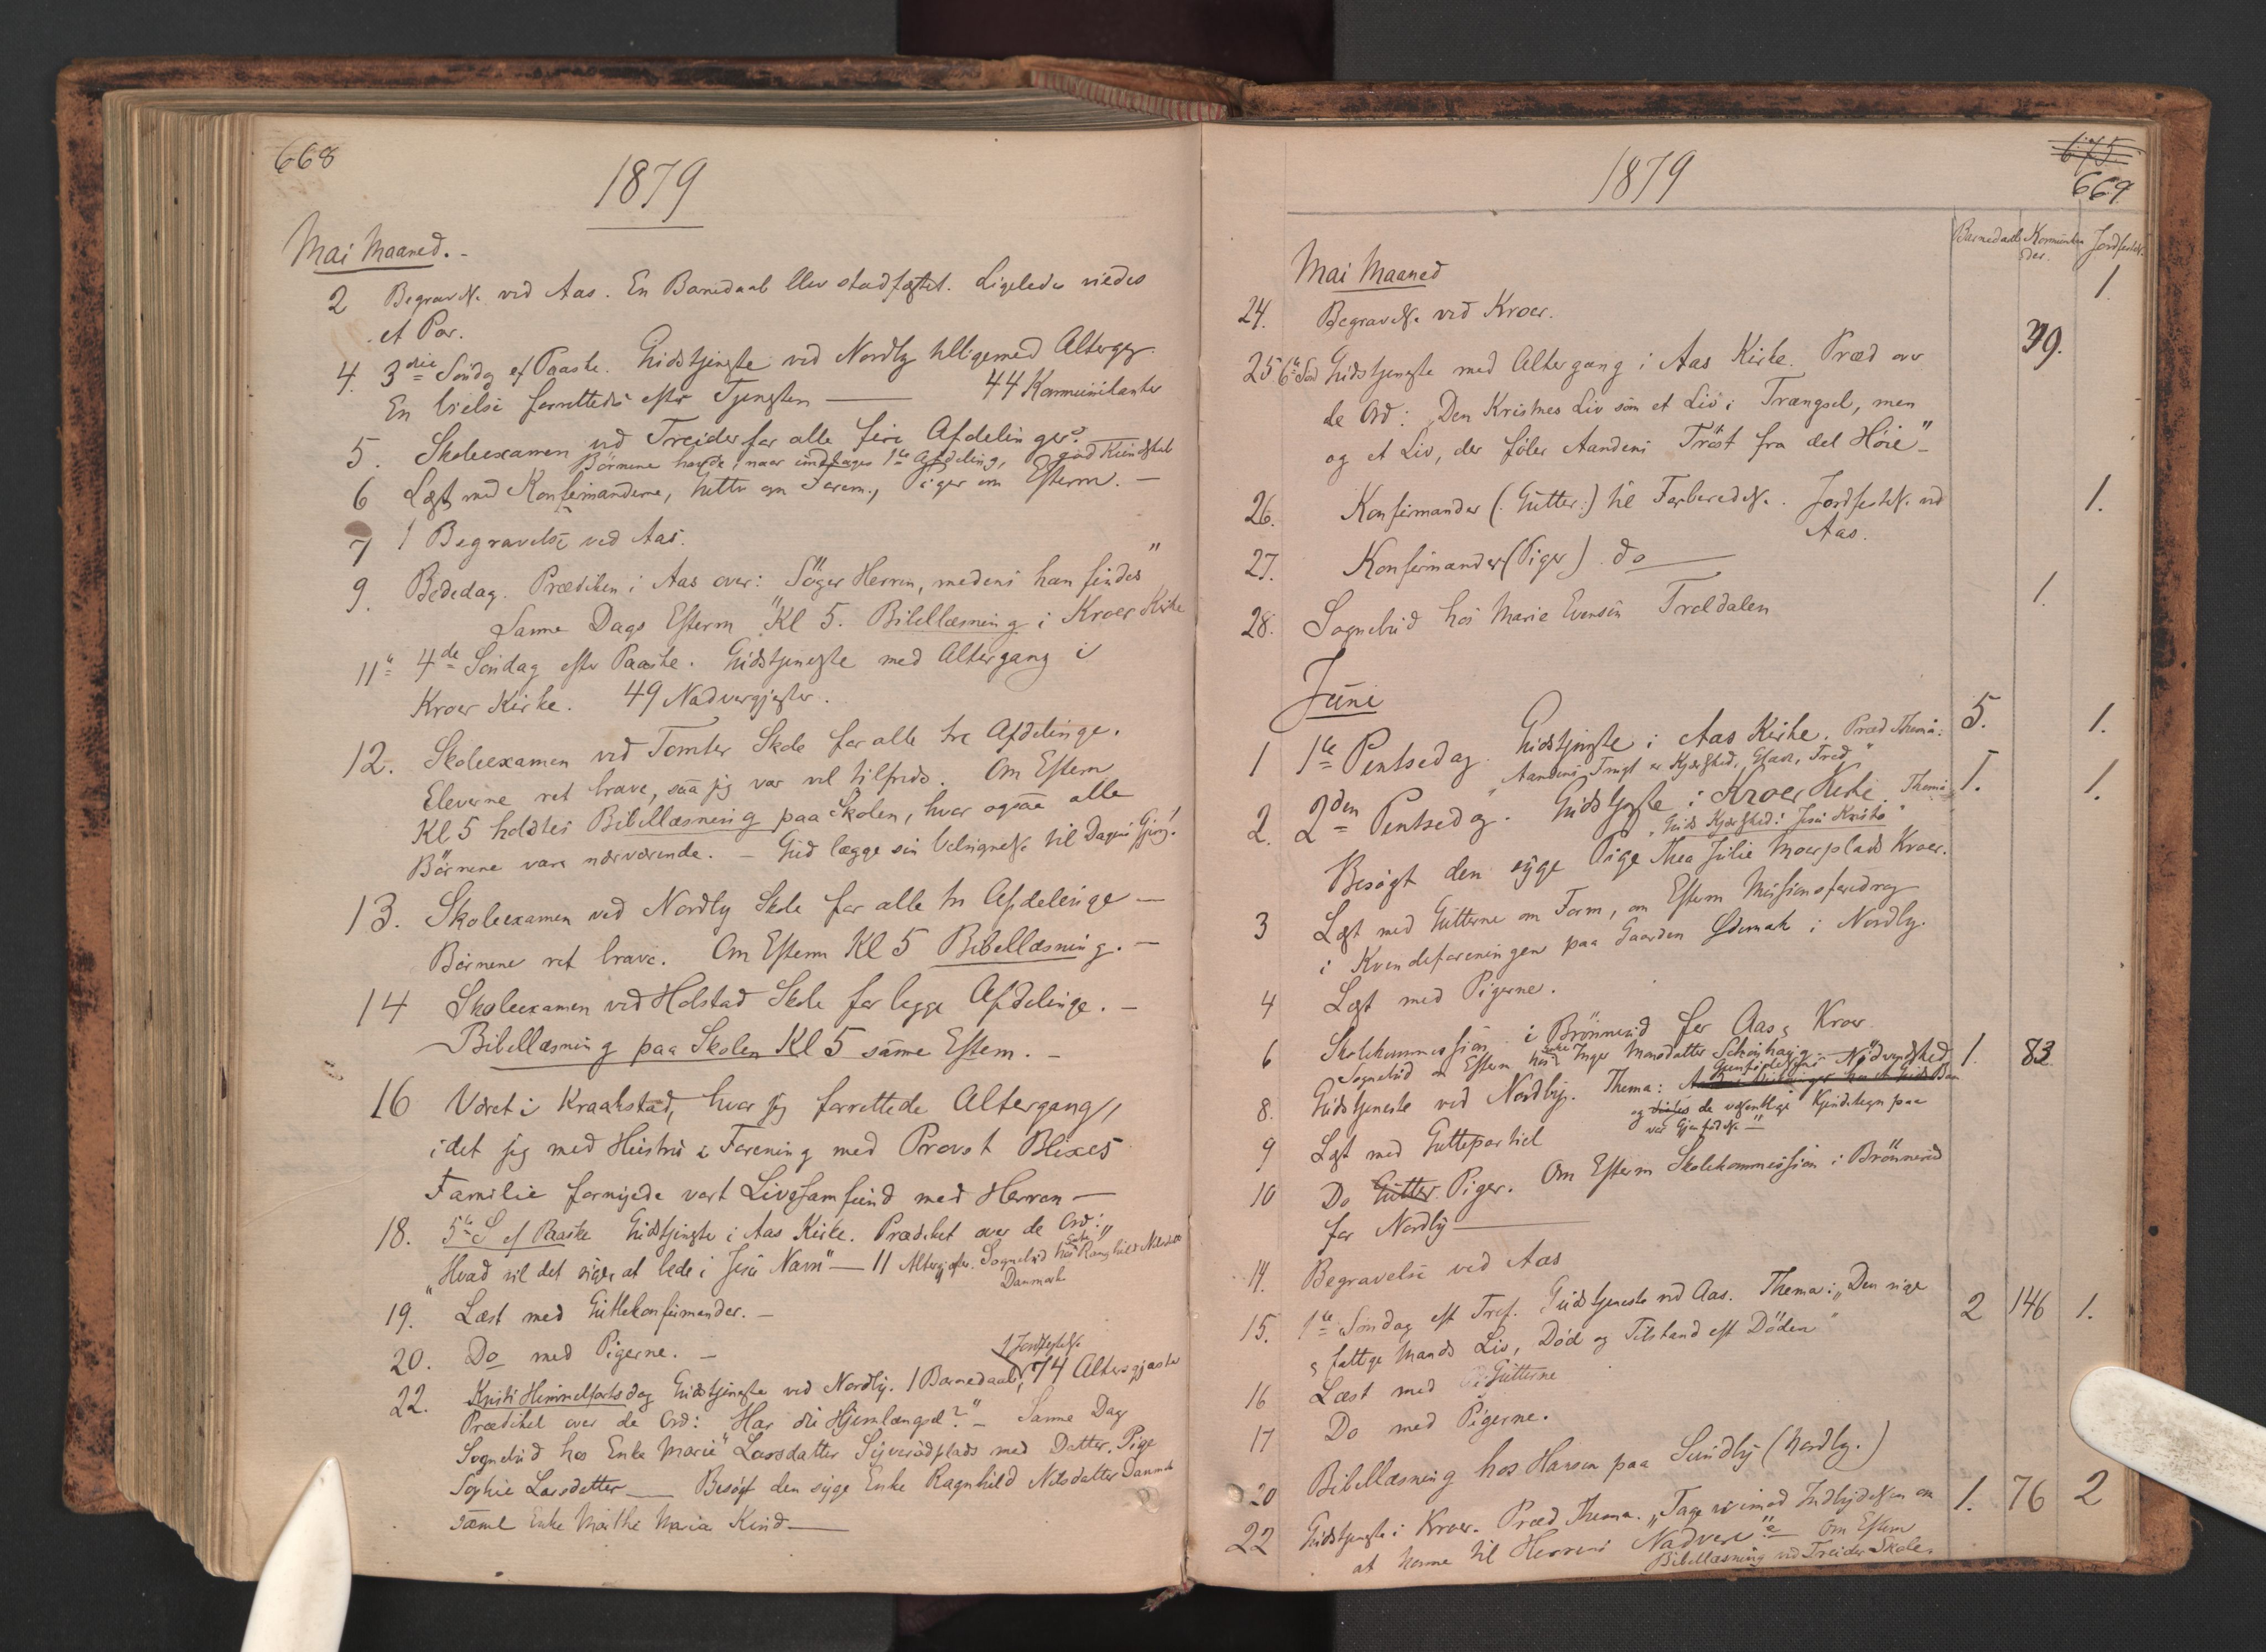 668
1879
Mai Maaned.-
2 Begravelse ved Aas. En Barnedaab blev stadfæstet. Ligeledes viedes
et Par.
4. 3die Søndag ef Paaske. Gudstjeneste ved Nordby tilligemed Altergg.
En Vielse forrettedes efter Tjenesten — 44 Kommunikanter
5. Skoleexamen ved Treider for alle fire Afdelinger.
Börnene havde, naar undtages 1ste Afdeling, god Kundskab
6 Læst med Konfirmanderne, Gutter om Form., Piger om Efterm. —
7 1 Begravelse ved Aas.
9. Bededag. Prædiken i Aas over: Söger Herren, medens han findes"
Samme Dags Efterm Kl 5. Bibellæsning i Kroer Kirke
11te 4de Søndag efter Paaske. Gudstjeneste med Altergang i
Kroer Kirke. 49 Nadvergjester.
12. Skoleexamen ved Tomter Skole for alle tre Afdelinge.
Eleverne ret brave, saa jeg var vel tilfreds. Om Efterm
Kl 5 holdtes Bibellæsning paa Skolen, hvor ogsaa alle
Börnene vare nærværende. — Gud lægge sin Velsignelse til Dagens Gjerng!
13. Skoleexamen ved Nordby Skole for alle tre Afdelinge —
Börnene ret brave. Om Efterm Kl 5 Bibellæsning. —
14 Skoleexamen ved Holstad Skole for begge Afdelinge. —
Bibellæsning paa Skolen Kl 5 samme Efterm. —
16 Været i Kraakstad, hvor jeg forrettede Altergang,
idet jeg med Hustru i Forening med Provst Blixes
Familie fornyede vort Livssamfund med Herren —
18. 5te S ef Paaske Gudstjeneste i Aas Kirke. Prædiket over de Ord:
"Hvad vil det sige, at bede i Jesu Navn" — 11 Altergjester. Sognebud hos Enke Ragnhild Nilsdatter
Danmark
19. Læst med Guttekonfirmander. —
20. Do med Pigerne. —
1 Jordfestelse
22. Kristi Himmelfartsdag Gudstjeneste ved Nordby. 1 Barnedaab, 74 Altergjester
Prædiket over de Ord: Har du Hjemlængsel?" — Samme Dag
Sognebud hos Enke Marie Larsdatter Syverudplads med Datter, Pige
Sophie Larsdatter — Besøgt den syge Enke Ragnhild Nilsdatter Danmark
samt Enke Marthe Maria Kind —
1879
675
669.
Barnedaab Kommunikander. Jordfestelse.
Mai Maaned
24. Begravelse ved Kroer. 1.
25 6te Sønd Gudstjeneste med Altergang i Aas Kirke. Præd over 39.
de Ord: Den Kristnes Liv som et Liv i Trængsel, men
og et Liv, der föler Aandens Tröst fra det Höie" —
26. Konfirmander (: Gutter:) til Forberedelse. Jordfestelse ved 1.
Aas.
27. Konfirmander (Piger) do —
28. Sognebud hos Marie Evensen Troldalen 1.
Juni
1 1ste Pentsedag. Gudstjeneste i Aas Kirke. Præd Thema: 5. 1.
"Aandens Frugt er Kjærlighed, Glæde, Fred"
2. 2den Pentsedag. Gudstjeneste i Kroer Kirke Thema 1. 1.
"Guds Kjærlighed i Jesu Kristo"
Besögt den syge Pige Thea Julie Moerplads Kroer.
3 Læst med Gutterne om Form, om Efterm Missionsforedrag
i Kvindeforeningen paa Gaarden Ødemark i Nordby.
4 Læst med Pigerne.
6 Skolekommission i Brönnerud for Aas og Kroer.
Sognebud om Efterm hos Enke Inger Monsdatter Schouhaug
8. Gudstjeneste ved Nordby. Thema: Gjenfödelsens Nödvendighed 1. 83
og de væsentlige Kjendetegn paa
vor Gjenfödelse —"
9 Læst med Guttepartiet
10 Do Gutter Piger. Om Efterm Skolekommission i Brönnerud
for Nordby —
14. Begravelse ved Aas
15. 1ste Søndag eft Tref. Gudstjeneste ved Aas. Thema: "Den rige 2 146 1.
og fattige Mands Liv, Död og Tilstand eft Döden"
16 Læst med Gutterne
17 Do med Pigerne.
20 Bibellæsning hos Hansen paa Sundby (Nordby.)
22 Gudstjeneste i Kroer. Præd Thema. "Tage vi imod Indbydelsen om 1. 76 2
at komme til Herrens Nadvere" Om Efterm
Bibellæsning ved Treider Skole.